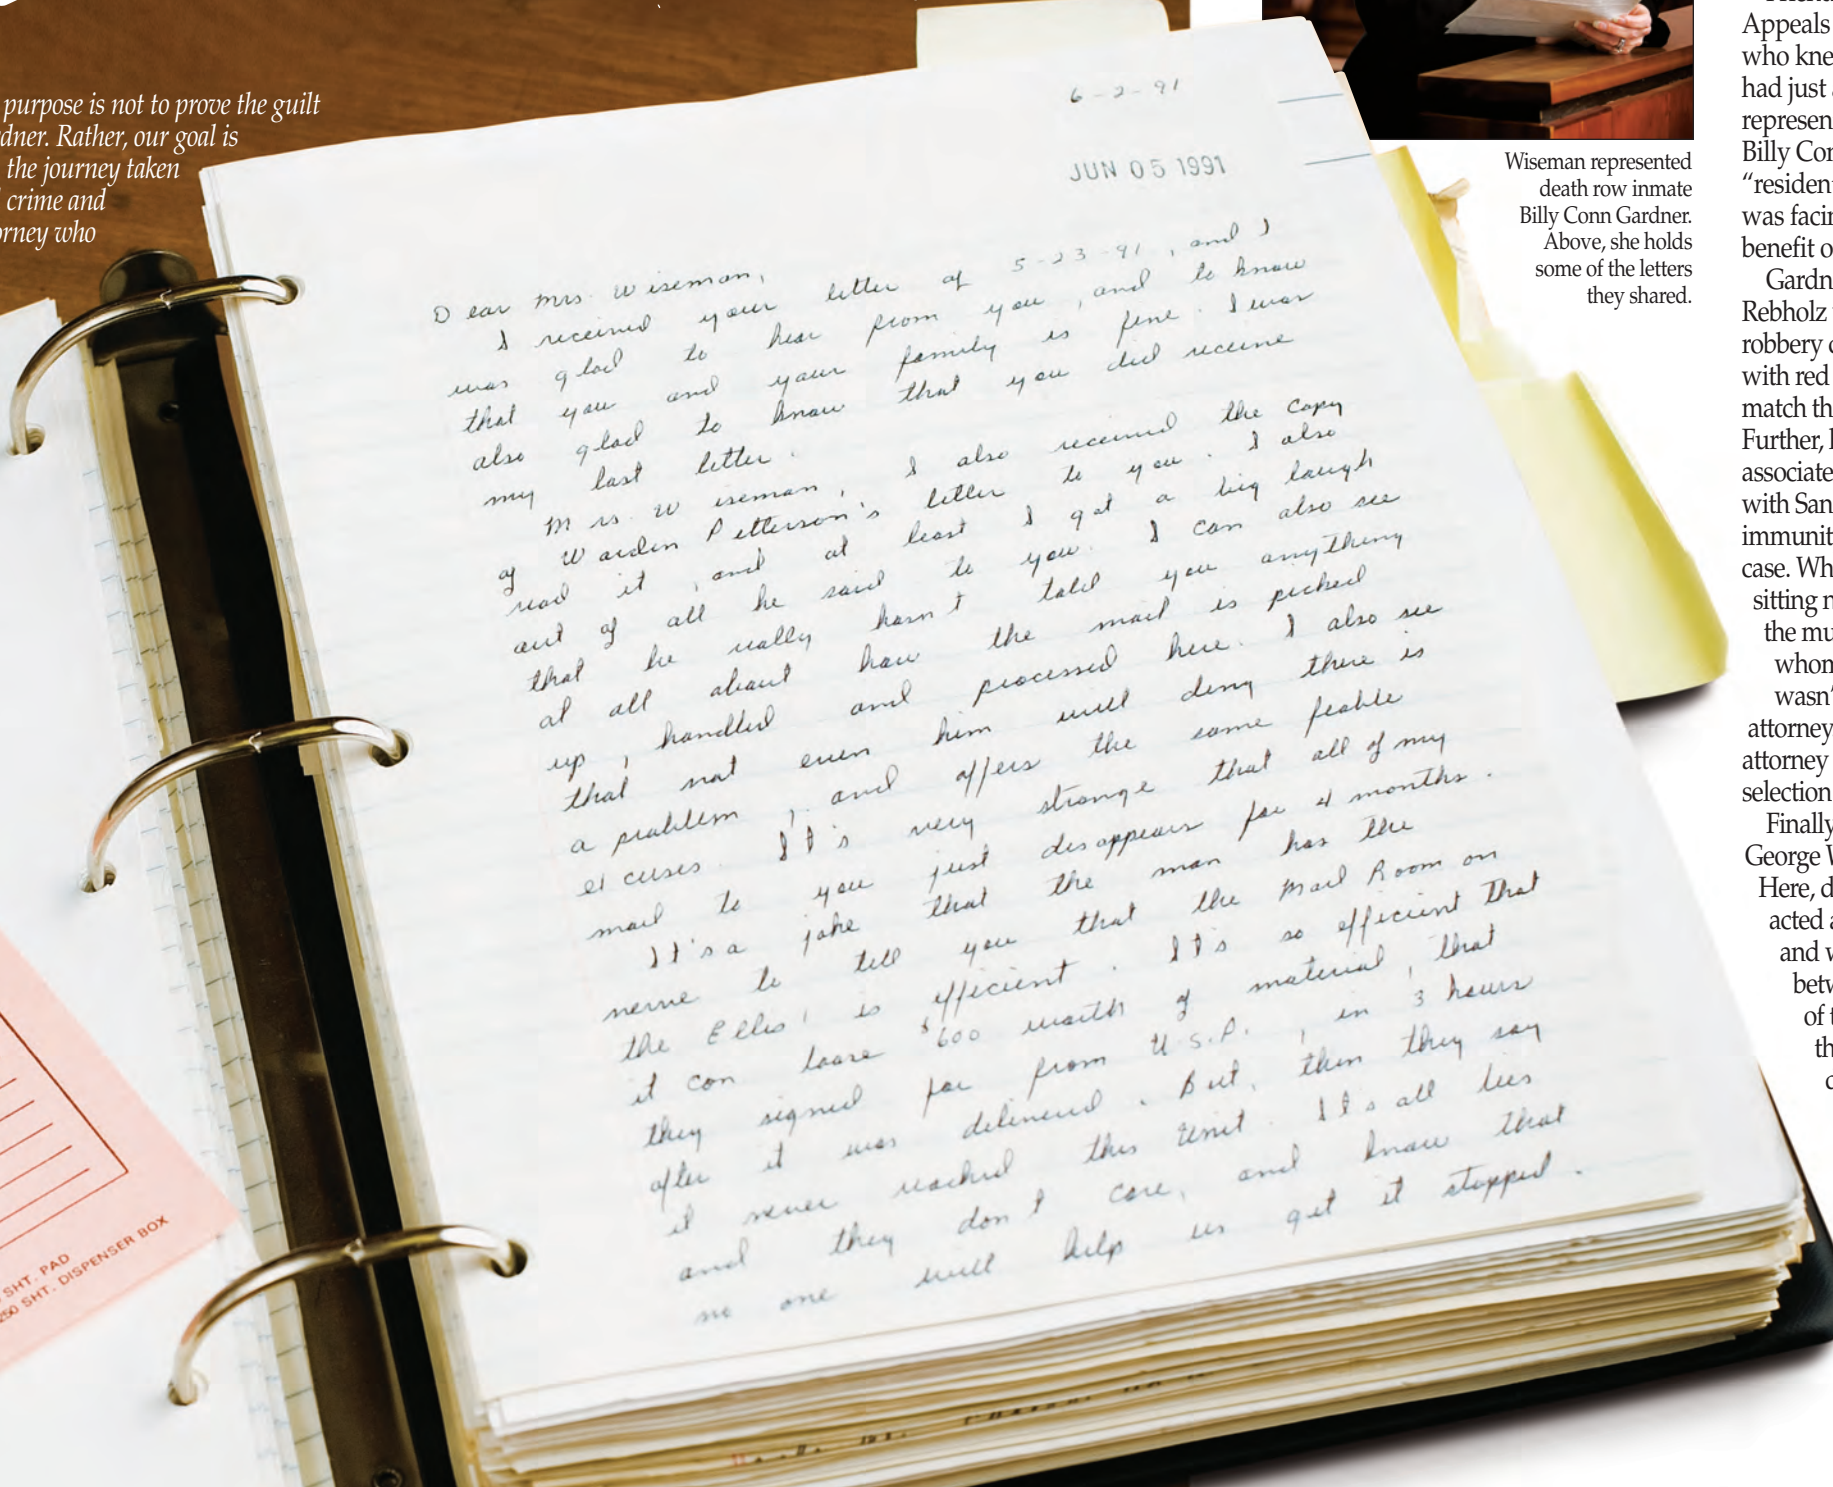 purpose is not to prove the guilt
dner. Rather, our goal is
the journey taken
crime and
orney who
6-2-91
JUN 05 1991
Dear Mrs. Wiseman,
I received your letter of 5-23-91, and I
was glad to hear from you, and to know
that you and your family is fine. I was
also glad to know that you did receive
my last letter.
Mrs. Wiseman, I also received the copy
of Warden Petterson's letter to you. I also
read it, and at least I got a big laugh
out of all he said to you. I can also see
that he really hasn't told you anything
at all about how the mail is picked
up, handled and processed here. I also see
that not even him will deny there is
a problem, and offers the same feable
excuses. It's very strange that all of my
mail to you just desappears for 4 months.
It's a joke that the man has the
nerve to tell you that the Mail Room on
the Ellis, is efficient. It's so efficient that
it can loose $600 worth of material, that
they signed for from U.S.P., in 3 hours
after it was delivered. But, then they say
it never reached this Unit. It's all lies
and they don't care, and know that
no one will help us get it stopped.
SHT. PAD
250 SHT. DISPENSER BOX
Wiseman represented
death row inmate
Billy Conn Gardner.
Above, she holds
some of the letters
they shared.
Appeals
who kne
had just
represen
Billy Con
“residen
was facin
benefit o
Gardn
Rebholz
robbery
with red
match th
Further,
associate
with San
immunit
case. Wh
sitting n
the mu
whom
wasn’
attorney
attorney
selection
Finally
George W
Here, d
acted a
and w
betw
of t
th